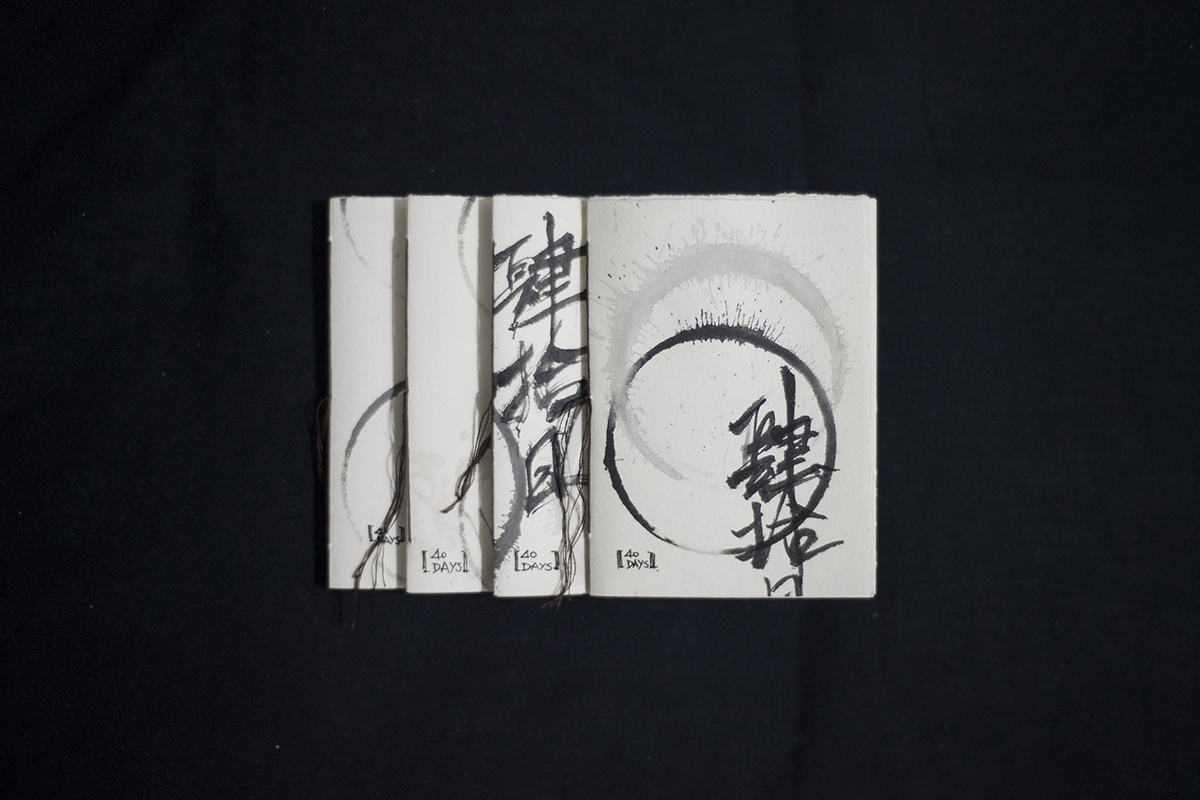 [40
DAYS]
[40
DAYS]
肆
拾
日
[40
DAYS]
肆
拾
日
[40
DAYS]